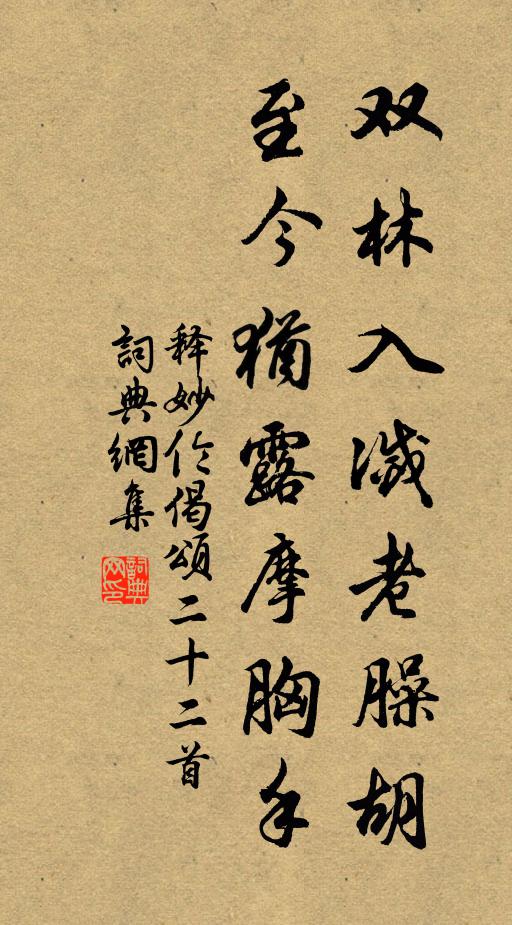 双林入滅老臊胡
至今猶露摩胸手
释妙伦偈頌二十二首
詞典網集
詞典网印